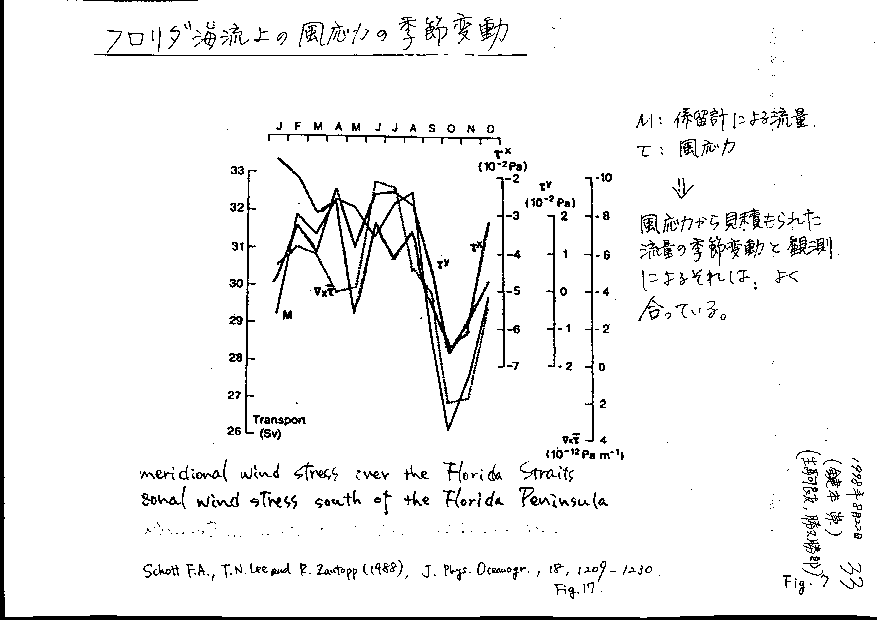 フロリダ海流上の風応力の季節変動
J F M A M J J A S O N D
τx
(10-2Pa)
τy
(10-2Pa)
33
32
31
30
29
28
27
26
Transport
(Sv)
-2
-3
-4
-5
-6
-7
2
1
0
-1
-2
-10
-8
-6
-4
-2
0
2
4
∇xτ
(10-12Pa m-1)
M
∇xτ
τy
τx
M: 係留計による流量
τ: 風応力
⇓
風応力から見積もられた
流量の季節変動と観測
によるそれは、よく
合っている。
meridional wind stress over the Florida Straits
zonal wind stress south of the Florida Peninsula
Schott F.A., T.N. Lee and R. Zantopp (1988), J. Phys. Oceanogr., 18, 1209-1230
Fig.17
Fig.
33